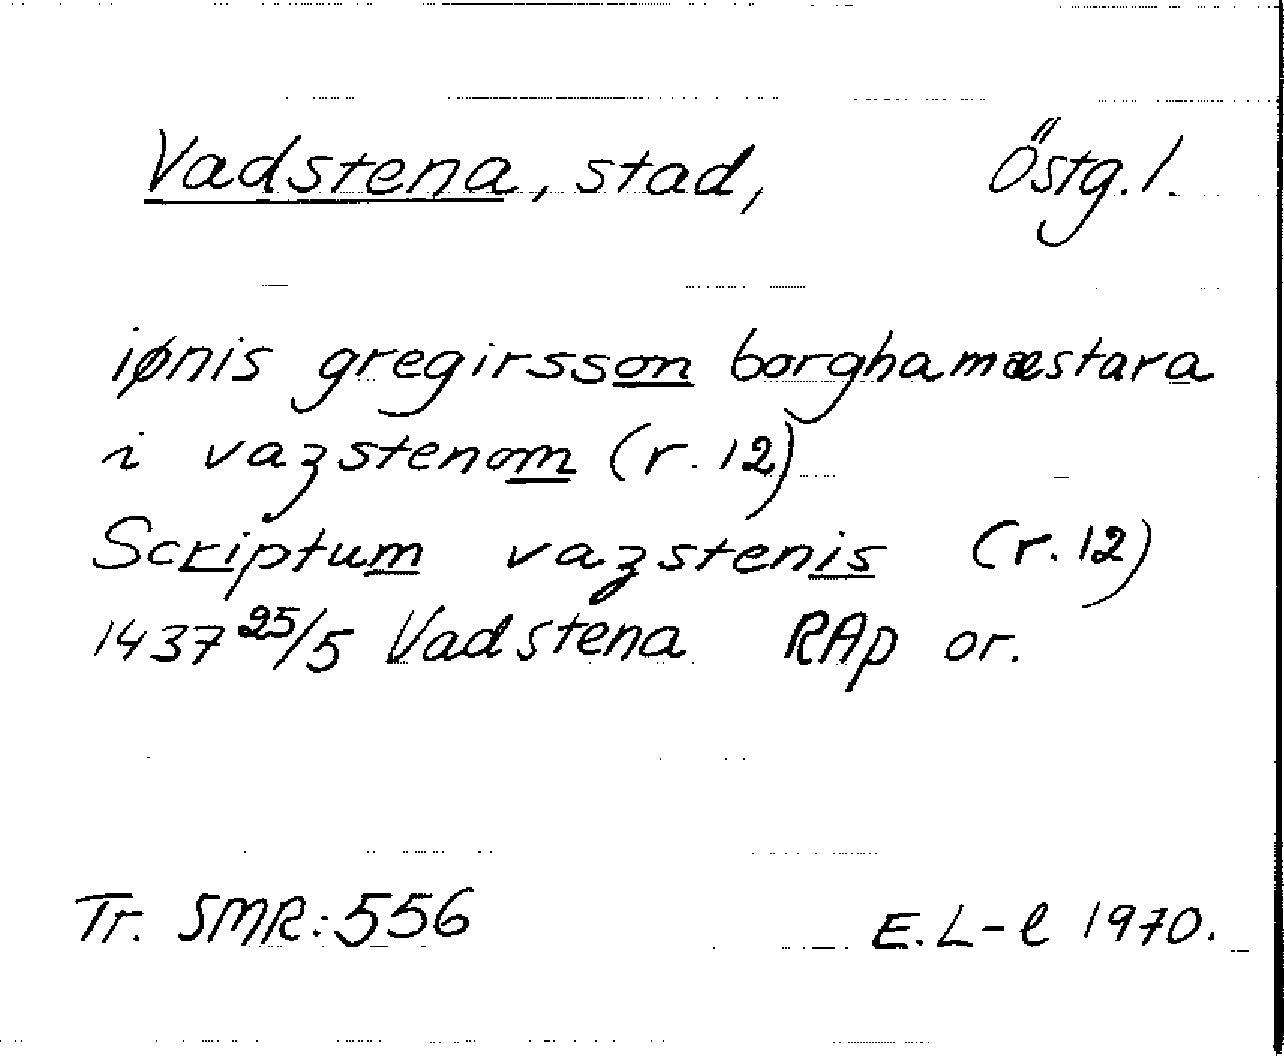 Vadstena, stad, Östg. l.
iønis gregirsson borghamæstara
i vazstenom (r. 12)
Scriptum vazstenis (r. 12)
1437 25/5 Vadstena RAp or.
Tr. SMR: 556 E. L-l 1970.